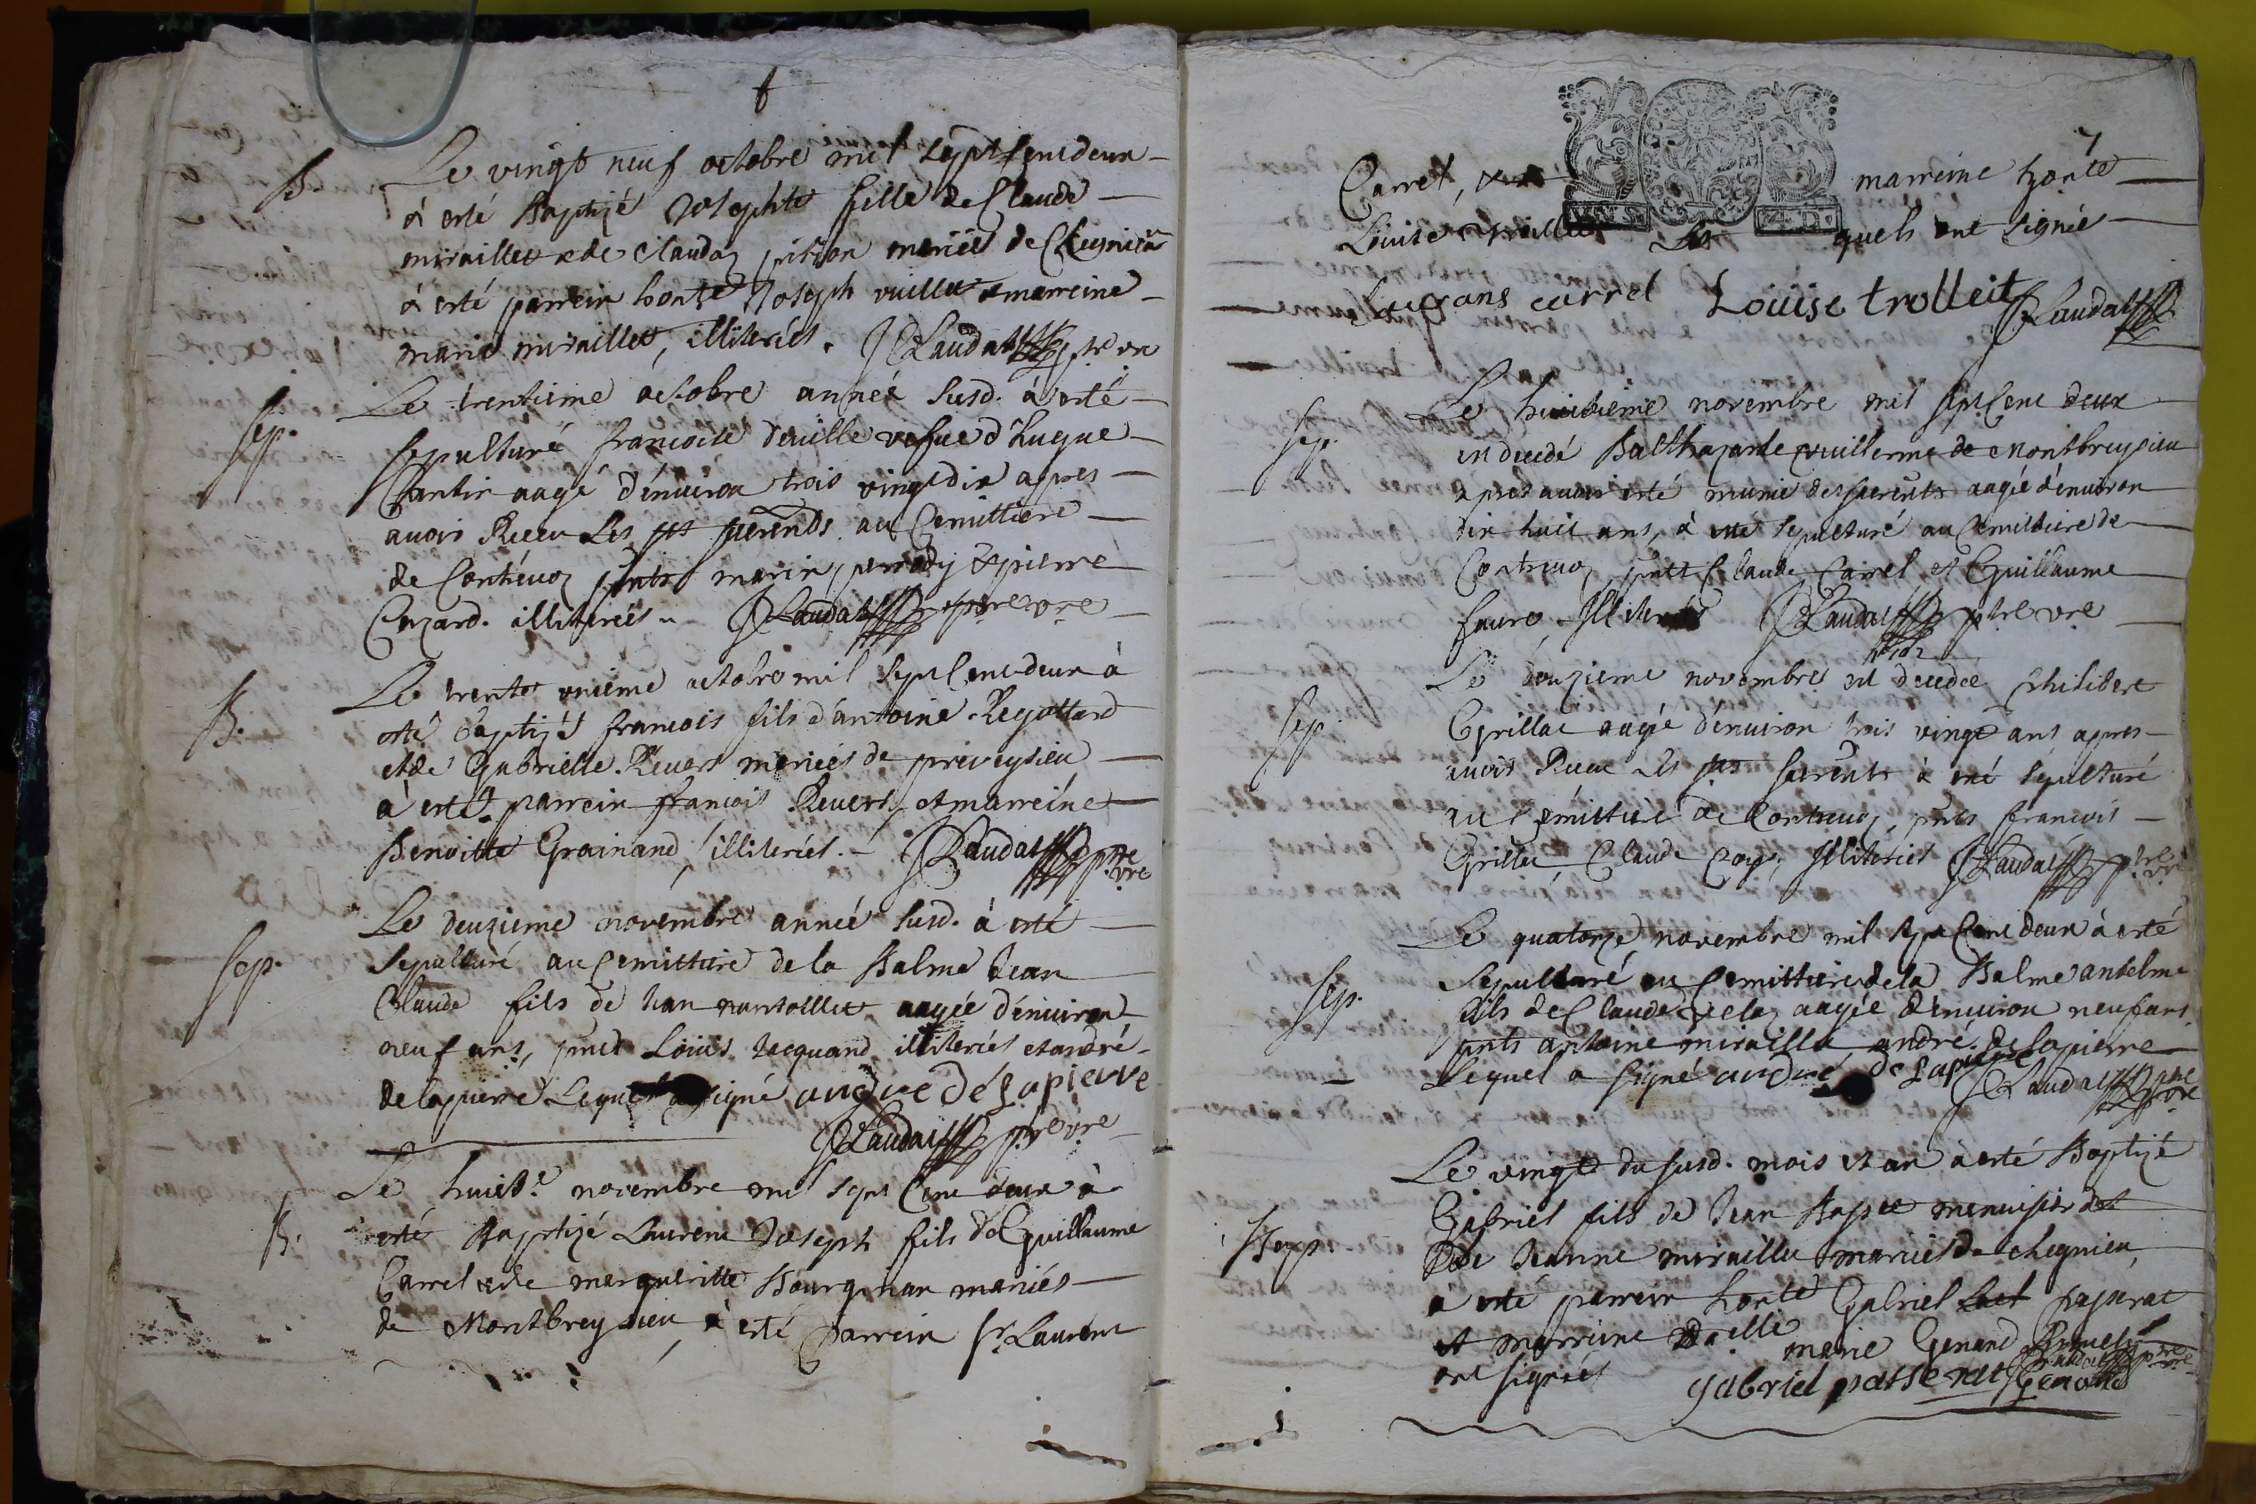 B. Le vingt neuf octobre mil sept cent deux
à esté Baptizé Josephte fille de Claude
miraillet & de Clauda pittion mariés de Chegnieu
à esté parrein honte Joseph vuillet & marreine
marie miraillet, illiterés. Laudat ptre vre
Sep. Le trentieme octobre année susd. à esté
sepulturé francoise deville vefue d'hugue
Cantin aagé d'enuiron trois vingt dix apres
auoir Receu Les sts sacrents au Cemittiere
de Contreuoz pnts marin perrody & pierre
Cozard. illiterés.. Laudat ptre vre
B. Le trente vnieme octobre mil sept cent deux à
esté Baptizé francois fils d'antoine Regottard
et de Gabrielle Reuers mariés de preveysieu
à esté parrein francois Reuers, et marreine
Benoitte Grainand, illiterés. Laudat ptre vre
Sep. Le deuzieme novembre année susd. à esté
sepulturé au Cemittiere de la Balme Jean
Claude fils de Jean nantoillet aagée d'enuiron
neuf ans, pnts Loüis Jacquand illiterés et andré
delapierre Lequel a signé andre delapierre
Laudat ptre vre
B. Le huict.e novembre mil sept Cent deux à
esté Baptizé Laurent Joseph fils de Guillaume
Carrel & de margueritte Bourginan mariés
de Montbreysieu, à esté parrein sr. Laurent
7
Carrel, marreine honte
Loüise Les quels ont signée
Laurans carrel Loüise trolleit Laudat
Sep. Le huictieme novembre mil sept Cent deux
est decedé Balthazarde vuillerme de Montbreysieu
apres auoir esté munie des sacrents aagée d'enuiron
dix huit ans, à esté sepulturé au Cemittiere de
Contreuoz, pnts Claude Carrel et Guillaume
faure, illiterés Laudat ptre vre
1702
Sep. Le douzieme novembre est decedée Philibert
Grillat aagée d'enuiron trois vingt ans apres
auoir Receu Les sts sacrents à esté sepulturé
au Cemittiere de Contreuoz, pnts francois
Grillat, Claude illiterés Laudat ptre vre
Sep. Le quatorze novembre mil sept Cent deux à esté
Sepulturé au Cemittiere de la Balme antelme
fils de Claude aagée d'enuiron neuf ans,
pnts antoine miraillet, andré delapierre
Lequel a signé andre delapierre Laudat ptre vre
Bapt. Le vingt du susd. mois et an à esté Baptizé
Gabriel fils de Jean Bapte menuisier
& de Jeanne miraillet mariés de chegnieu,
à esté parrein honte Gabriel passerat
et marreine Dlle marie Genand
ont signés gabriel passerat Genand Laudat ptre vre